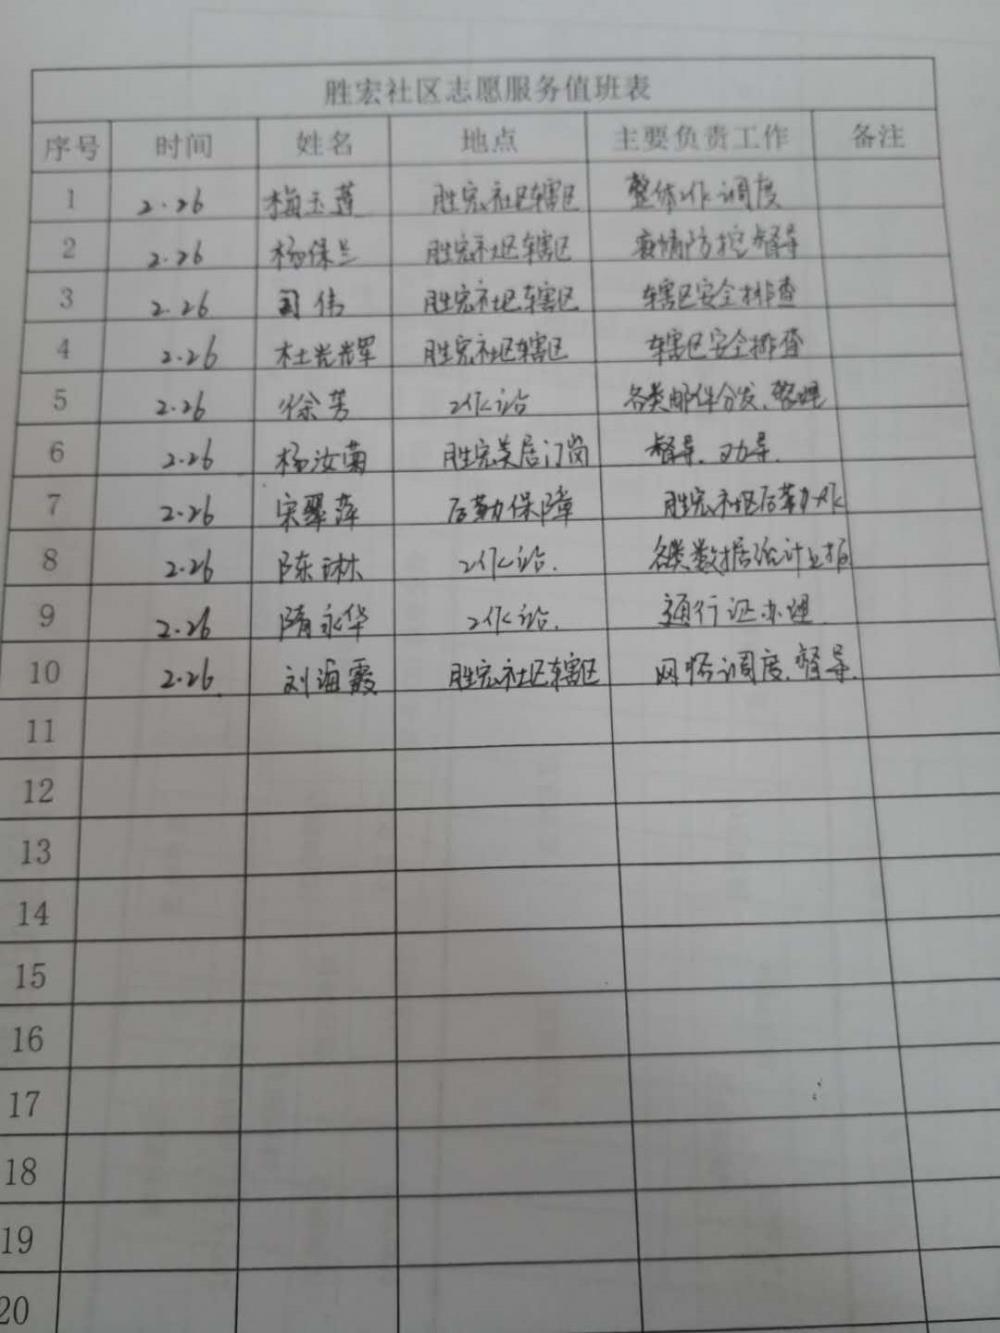 胜宏社区志愿服务值班表
序号 时间 姓名 地点 主要负责工作 备注
1 2.26 梅玉莲 胜宏社区辖区 整体工作调度
2 2.26 杨保兰 胜宏社区辖区 疫情防控督导
3 2.26 司伟 胜宏社区辖区 辖区安全排查
4 2.26 杜光辉 胜宏社区辖区 辖区安全排查
5 2.26 徐芳 工作站 各类邮件分发、整理
6 2.26 杨汝菊 胜宏美居门岗 督导、劝导.
7 2.26 宋翠萍 后勤保障 胜宏社区后勤工作
8 2.26 陈琳 工作站. 各类数据统计上报
9 2.26 隋永华 工作站. 通行证办理.
10 2.26. 刘海霞 胜宏社区辖区 网格调度、督导.
11
12
13
14
15
16
17
18
19
20